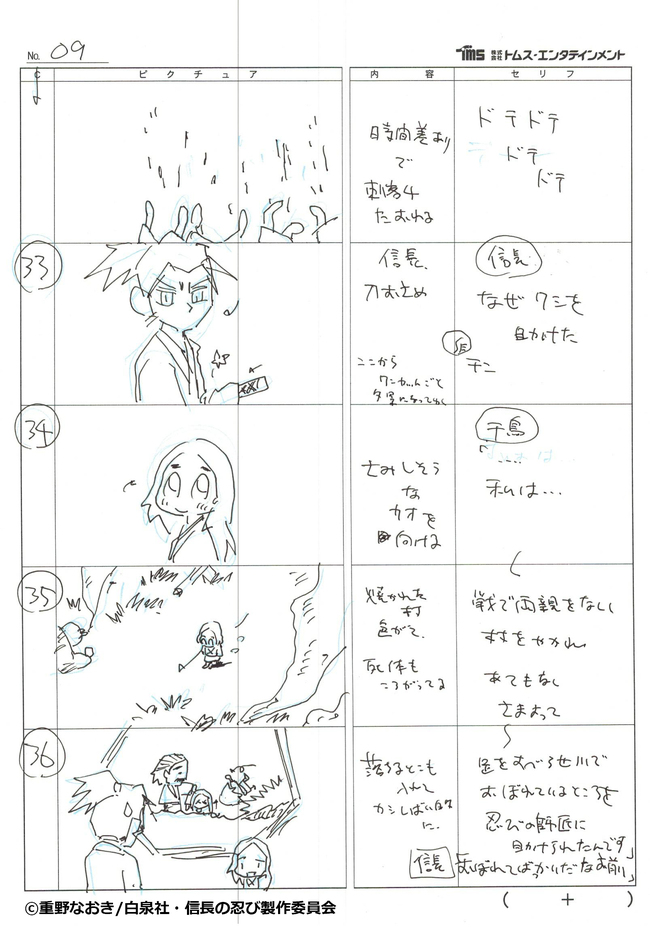 No. 09
TMS 株式会社 トムス・エンタテインメント
C ピクチュア 内容 セリフ
時間差あり
で
刺客4
たおれる
ドテドテ
ドテ
ドテ
33
信長、
刀おさめ
ここから
夕景になってゆく
信長
なぜワシを
助けた
SE
チン
34
なカオを
向ける
千鳥
私は…
35
焼かれた
村
死体も
ころがってる
戦で両親をなくし
村をやかれ
あてもなく
さまよって
36
落ちるとこも
入れて
カミしばい的
に.
足をすべらせ川で
おぼれているところを
忍びの師匠に
助けられたんです」
信長
「おぼれてばっかいだなお前」
( + )
©重野なおき/白泉社・信長の忍び製作委員会